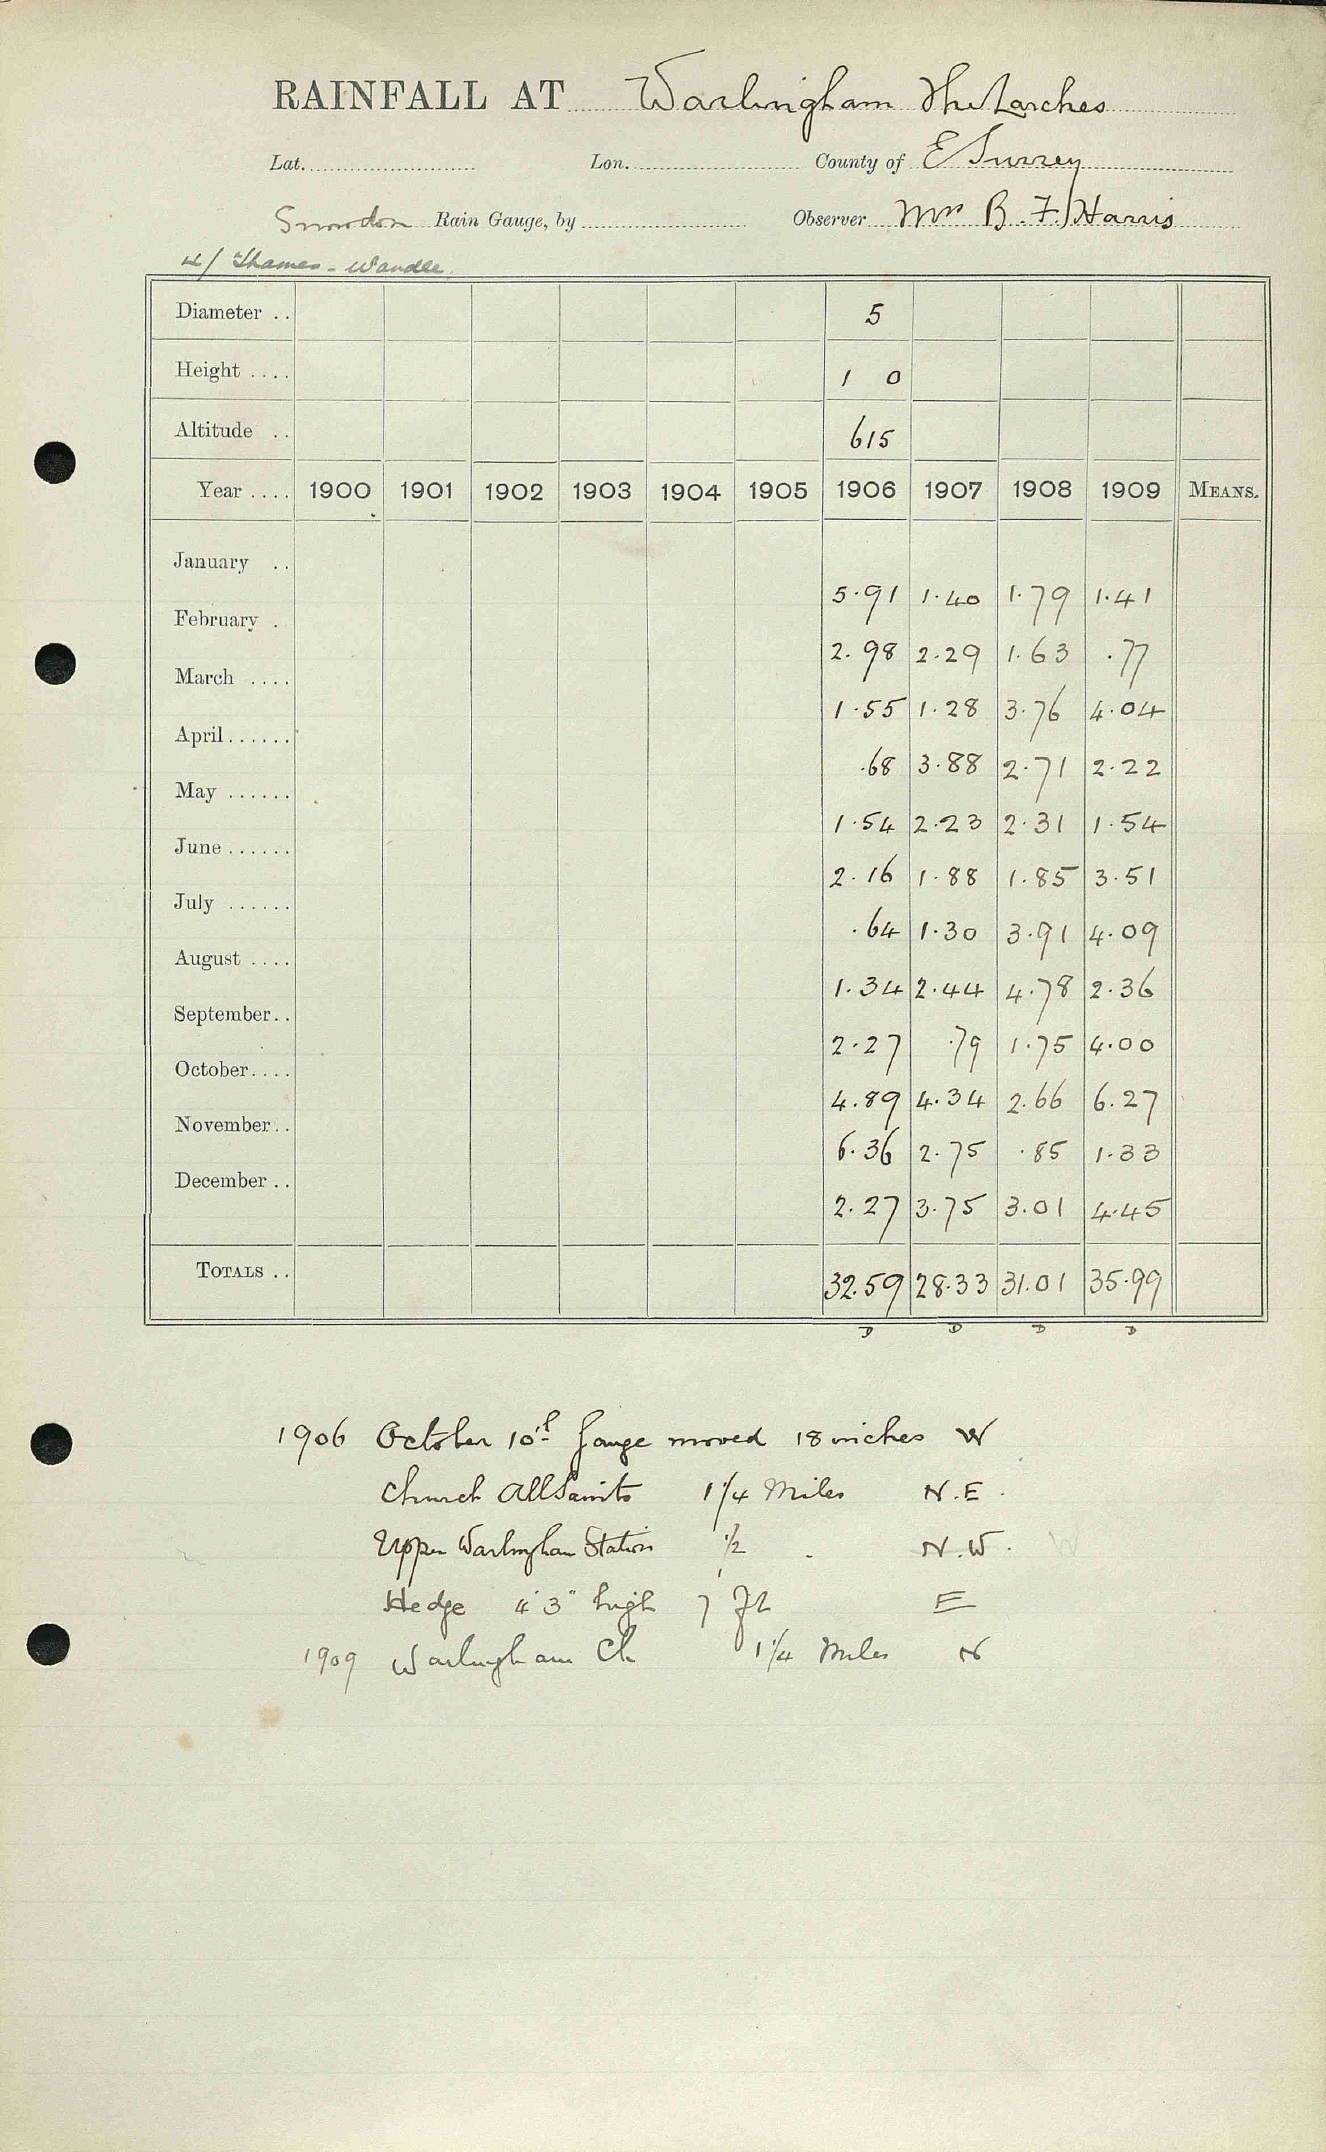 RAINFALL AT Warlingham The Larches
Lat. Lon. County of E Surrey
Snowdon Rain Gauge, by Observer Mrs B. F. Harris
4/ Thames - Wandle.
Diameter .. 5
Height .... 1 0
Altitude .. 615
Year .... 1900 1901 1902 1903 1904 1905 1906 1907 1908 1909 MEANS.
January .. 5.91 1.40 1.79 1.41
February . 2.98 2.29 1.63 .77
March .... 1.55 1.28 3.76 4.04
April...... .68 3.88 2.71 2.22
May ...... 1.54 2.23 2.31 1.54
June ...... 2.16 1.88 1.85 3.51
July ...... .64 1.30 3.91 4.09
August .... 1.34 2.44 4.78 2.36
September.. 2.27 .79 1.75 4.00
October.... 4.89 4.34 2.66 6.27
November.. 6.36 2.75 .85 1.33
December .. 2.27 3.75 3.01 4.45
TOTALS .. 32.59 28.33 31.01 35.99
D D D D
1906 October 10th Gauge moved 18 inches W
Church All Saints 1 1/4 Miles N.E.
Upper Warlingham Station 1/2 . N.W.
Hedge 4' 3" high 7 ft E
1909 Warlingham Ch 1 1/4 Miles N